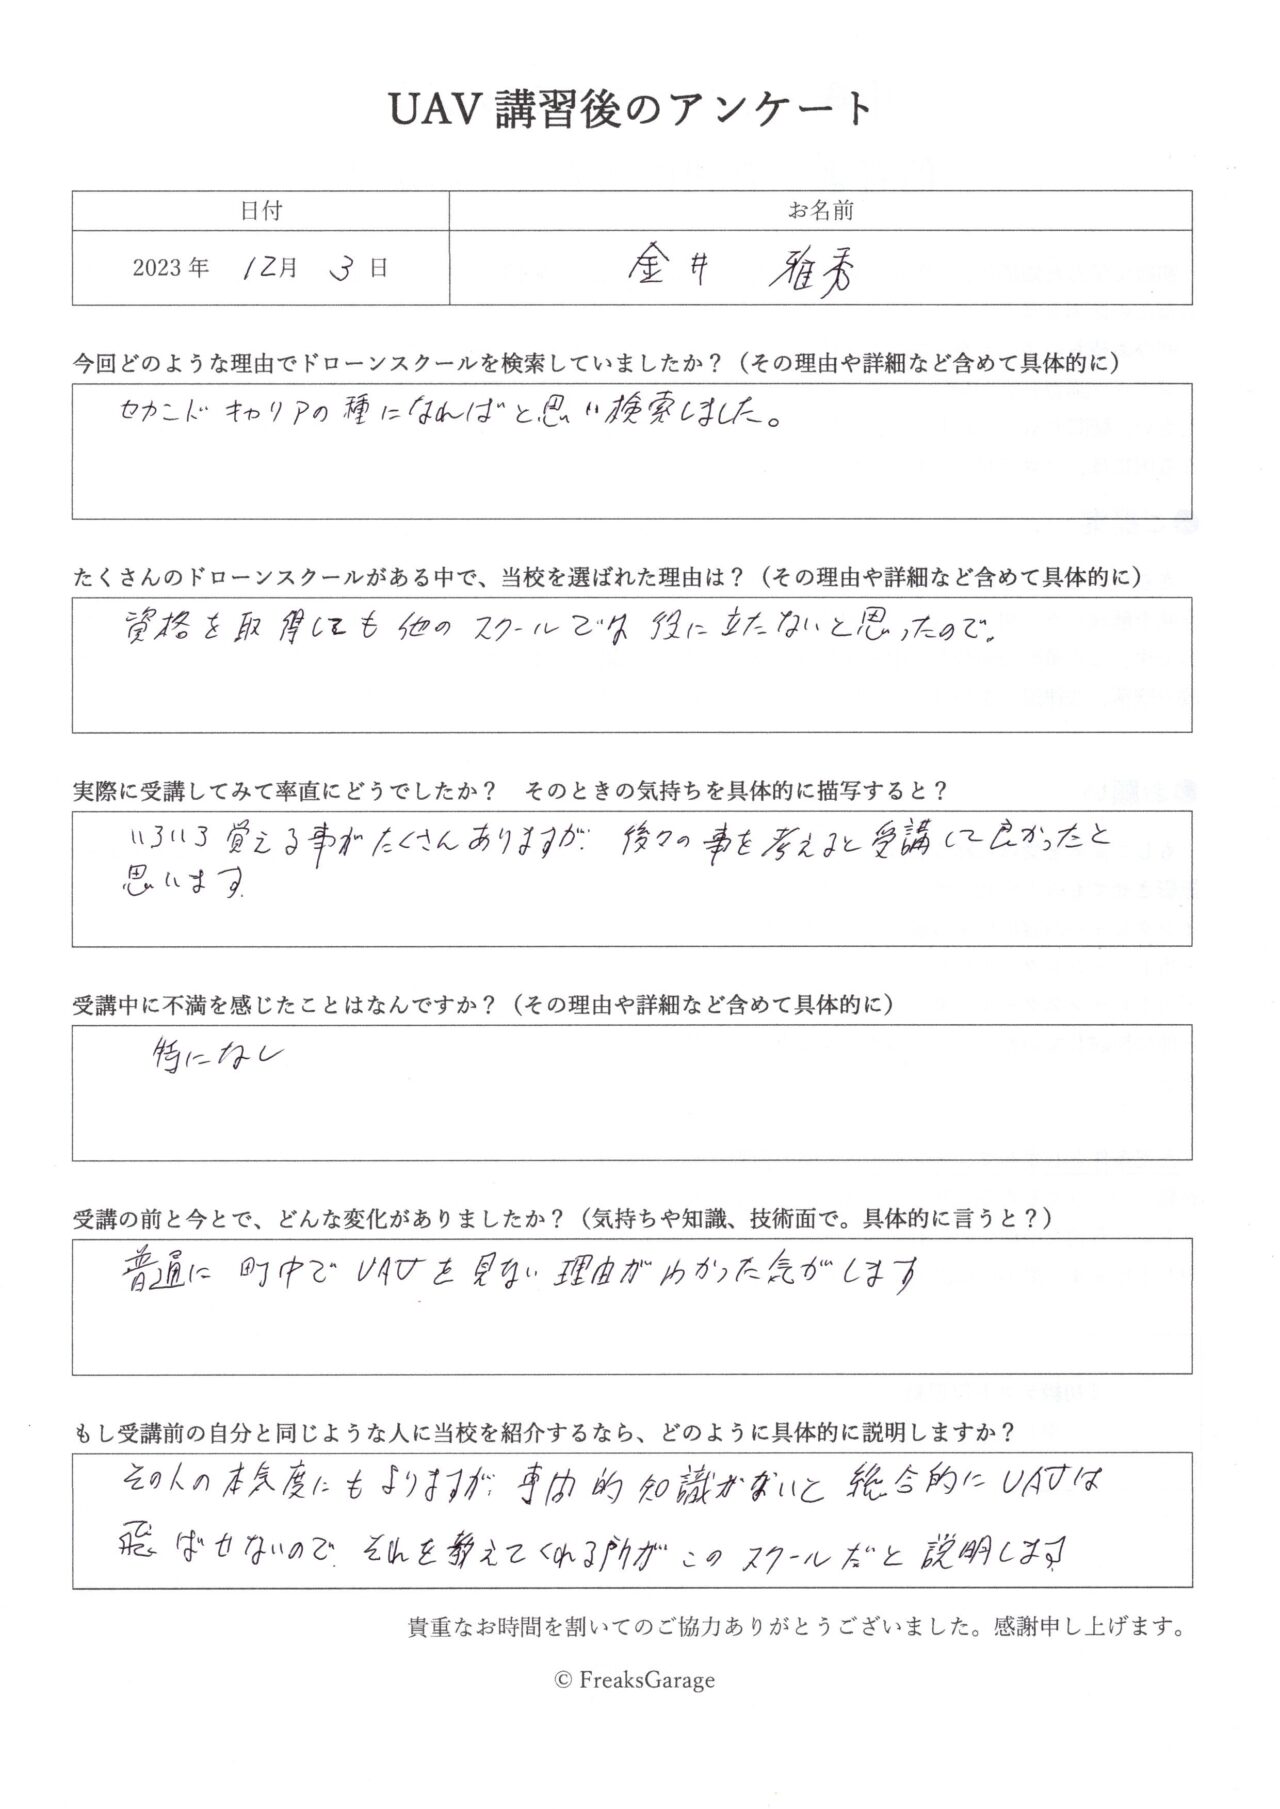 UAV 講習後のアンケート
日付 お名前
2023年 12月 3日 金井 雅秀
今回どのような理由でドローンスクールを検索していましたか？（その理由や詳細など含めて具体的に）
セカンドキャリアの種になればと思い検索しました。
たくさんのドローンスクールがある中で、当校を選ばれた理由は？（その理由や詳細など含めて具体的に）
資格を取得しても他のスクールでは役に立たないと思ったので。
実際に受講してみて率直にどうでしたか？　そのときの気持ちを具体的に描写すると？
いろいろ覚える事がたくさんありますが、後々の事を考えると受講して良かったと
思います。
受講中に不満を感じたことはなんですか？（その理由や詳細など含めて具体的に）
特になし
受講の前と今とで、どんな変化がありましたか？（気持ちや知識、技術面で。具体的に言うと？）
普通に町中でUAVを見ない理由がわかった気がします
もし受講前の自分と同じような人に当校を紹介するなら、どのように具体的に説明しますか？
その人の本気度にもよりますが、専門的知識がないと総合的にUAVは
飛ばせないので、それを教えてくれる所がこのスクールだと説明します
貴重なお時間を割いてのご協力ありがとうございました。感謝申し上げます。
© FreaksGarage